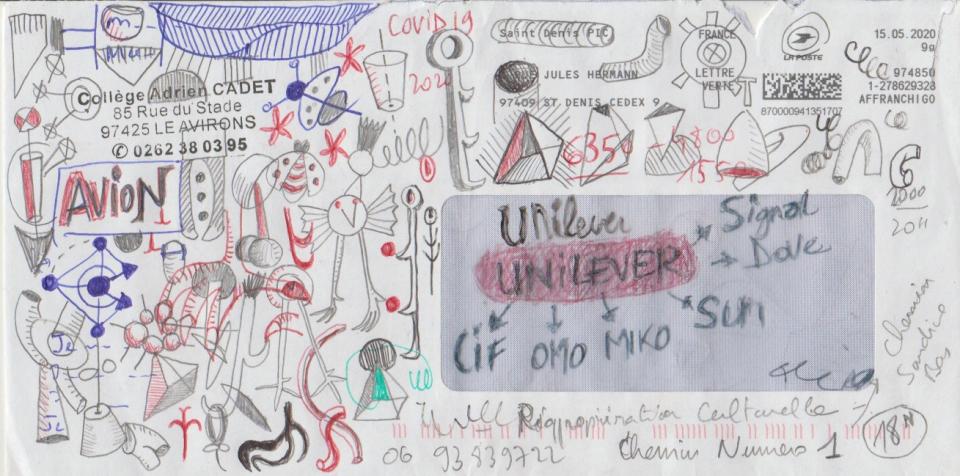 COVID 19
202
Collège Adrien CADET
85 Rue du Stade
97425 LE AVIRONS
✆ 0262 38 03 95
AVION
Saint Denis PIC
RUE JULES HERMANN
97409 ST DENIS CEDEX 9
FRANCE
LETTRE
VERTE
LA POSTE
870000941351707
15.05.2020
9g
974850
1-278629328
AFFRANCHIGO
6350
1550
2000
2011
Unilever
UNILEVER
Signal
Dove
CIF
OMO
MIKO
SUN
Chemin
Bas
Réappropriation Culturelle
06 93839722
Chemin Numero 1
18H